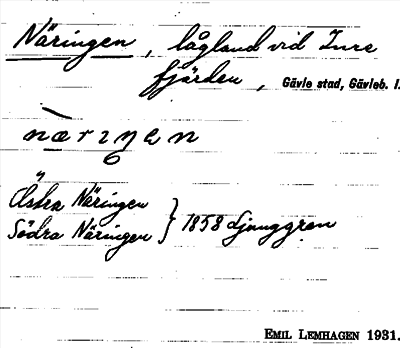 Näringen, lågland vid Inre
fjärden, Gävle stad, Gävleb. l.
nærıŋen
Östra Näringen
Södra Näringen } 1858 Ljunggren
EMIL LEMHAGEN 1931.